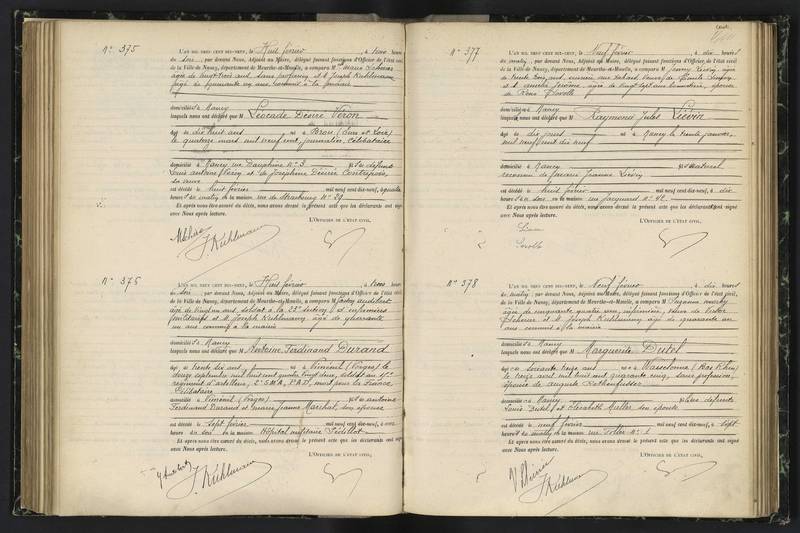 N° 375
L'AN MIL NEUF CENT DIX-NEUF, le Huit février, à trois heures
du soir, par devant Nous, Adjoint au Maire, délégué faisant fonctions d'Officier de l'état civil
de la Ville de Nancy, département de Meurthe-et-Moselle, a comparu M
âgée de vingt trois ans, sans profession et M Joseph Kuhlmann
âgé de quarante un ans, commis à la mairie
domiciliés à Nancy
lesquels nous ont déclaré que Léocade Désiré Véron
âgé de dix huit ans né à Brou (Eure et Loir)
le quatorze mars mil neuf cent, journalier, célibataire
domicilié à Nancy rue Dauphine n° 3 fils de défunt
Louis antoine Véron et de Joséphine Désirée
sa veuve
est décédé le huit février mil neuf cent dix-neuf, à quatre
heures du matin, en la maison rue de Strasbourg n° 29
Et après nous être assuré du décès, nous avons dressé le présent acte que les déclarants ont signé
avec Nous après lecture.
L'OFFICIER DE L'ÉTAT CIVIL,
J. Kuhlmann
N° 376
L'AN MIL NEUF CENT DIX-NEUF, le Huit février à trois heures
du soir, par devant Nous, Adjoint au Maire, délégué faisant fonctions d'Officier de l'état civil
de la Ville de Nancy, département de Meurthe-et-Moselle, a comparu M
âgé de vingt un ans, soldat à la 23e section d'infirmiers
militaires et M Joseph Kuhlmann âgé de quarante
un ans commis à la mairie
domiciliés à Nancy
lesquels nous ont déclaré que Antoine Ferdinand Durand
âgé de trente six ans né à Viménil (Vosges) le
douze septembre mil huit cent quatre vingt deux, soldat au
régiment d'artillerie, mort pour la France,
Célibataire
domicilié à Viménil (Vosges) fils de antoine
Ferdinand Durand et marie Jeanne Marchal, son épouse
est décédé le sept février mil neuf cent dix-neuf, à onze
heures du soir en la maison Hôpital militaire Sédillot
Et après nous être assuré du décès, nous avons dressé le présent acte que les déclarants ont signé
avec Nous après lecture.
L'OFFICIER DE L'ÉTAT CIVIL,
J. Kuhlmann
N° 377
L'AN MIL NEUF CENT DIX-NEUF, le Neuf février, à dix heures
du matin, par devant Nous, Adjoint au Maire, délégué faisant fonctions d'Officier de l'état civil
de la Ville de Nancy, département de Meurthe-et-Moselle, a comparu M
domiciliés à Nancy
lesquels nous ont déclaré que Raymond Jules Liévin
âgé de dix jours né à Nancy le trente janvier
mil neuf cent dix neuf
domicilié à Nancy fils naturel
reconnu de Jeanne Liévin
est décédé le huit février mil neuf cent dix-neuf, à dix
heures du soir, en la maison rue Jacquard n° 42
Et après nous être assuré du décès, nous avons dressé le présent acte que les déclarants ont signé
avec Nous après lecture.
L'OFFICIER DE L'ÉTAT CIVIL,
N° 378
L'AN MIL NEUF CENT DIX-NEUF, le Neuf février à dix heures
du matin, par devant Nous, Adjoint au Maire, délégué faisant fonctions d'Officier de l'état civil,
de la Ville de Nancy, département de Meurthe-et-Moselle, a comparu M Suzanne
âgée de cinquante quatre ans, infirmière, veuve de Victor
et M Joseph Kuhlmann âgé de quarante un
ans commis à la mairie
domiciliés à Nancy
lesquels nous ont déclaré que Marguerite Dutel
âgée de soixante treize ans née à Wasselonne (Bas Rhin)
le treize avril mil huit cent quarante cinq, sans profession,
épouse de auguste
domiciliée à Nancy fille de défunts
Louis Dutel et Elisabeth Muller son épouse
est décédée le neuf février mil neuf cent dix-neuf, à sept
heures du matin en la maison rue
Et après nous être assuré du décès, nous avons dressé le présent acte que les déclarants ont signé
avec Nous après lecture.
L'OFFICIER DE L'ÉTAT CIVIL,
J. Kuhlmann